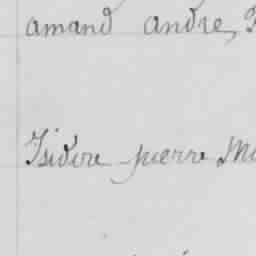 amand andre,
Isidore pierre